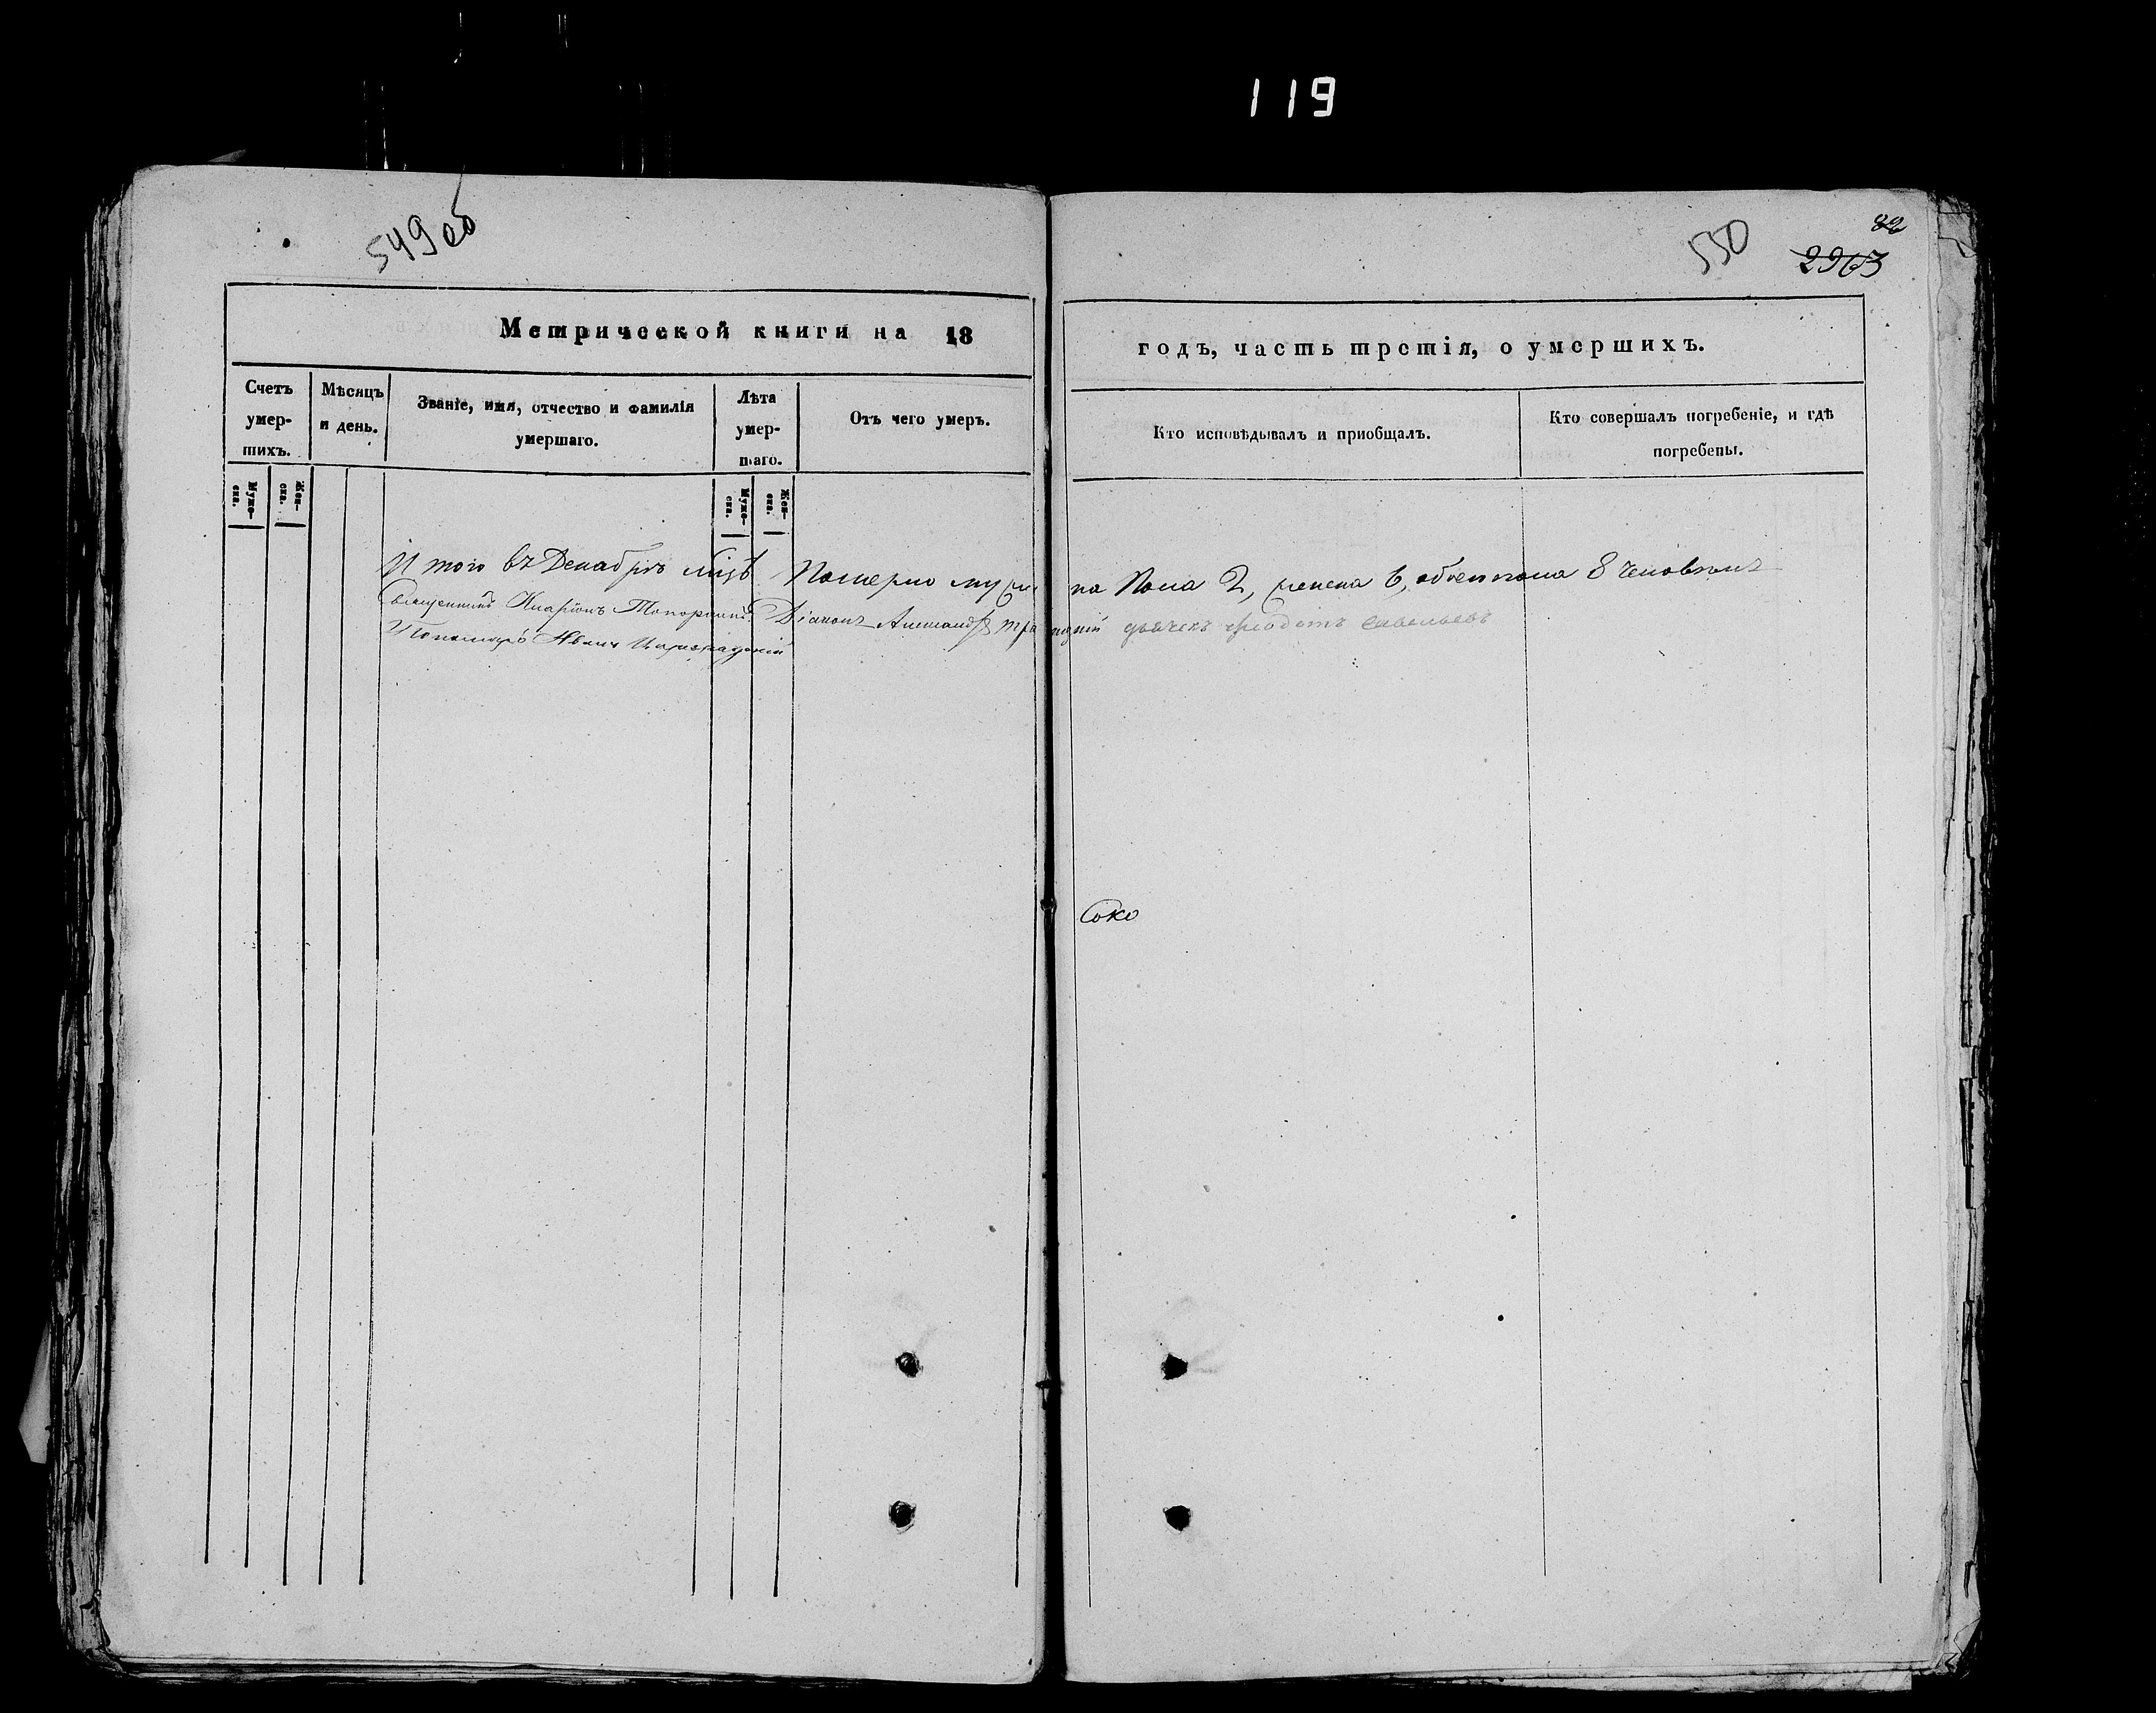 119
549 об
550
82
2963
Метрической книги на 18
годъ, часть третія, о умершихъ.
Счетъ умер-шихъ.
Мѣсяцъ и день.
Званіе, имя, отчество и фамилія умершаго.
Лѣта умер-шаго.
Отъ чего умеръ.
Кто исповѣдывалъ и приобщалъ.
Кто совершалъ погребеніе, и гдѣ погребены.
Муже-ска.
Жен-ска.
Муже-ска.
Жен-ска.
Итого въ Декабрѣ Померло муж пола 2, женска 6, обоего пола 8 человѣкъ
Священникъ Иларіонъ Діаконъ дьячекъ Савельевъ
Пономарь Иванъ
Соко